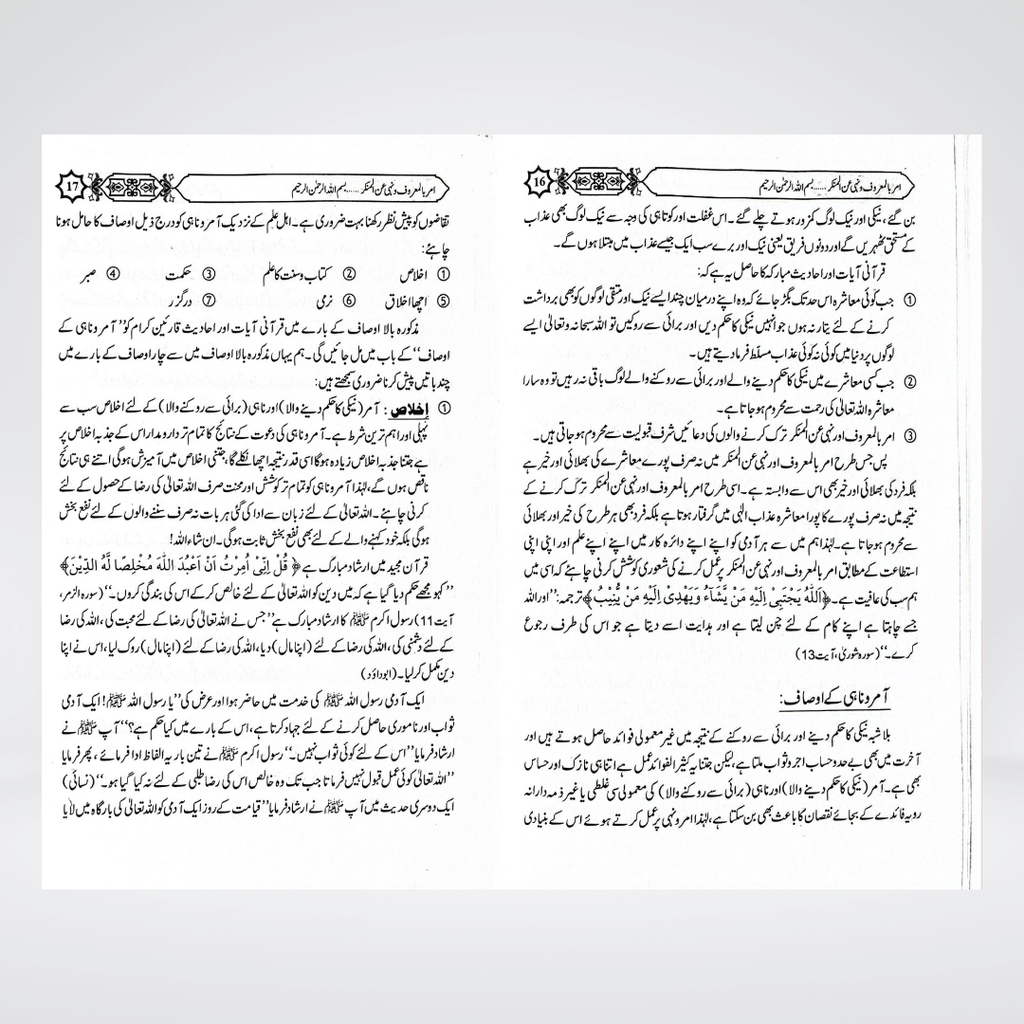 امر بالمعروف ونہی عن المنکر ...... بسم اللہ الرحمٰن الرحیم
16
بن گئے، نیکی اور نیک لوگ کمزور ہوتے چلے گئے۔ اس غفلت اور کوتاہی کی وجہ سے نیک لوگ بھی عذاب
کے مستحق ٹھہریں گے اور دونوں فریق یعنی نیک اور برے سب ایک جیسے عذاب میں مبتلا ہوں گے۔
قرآنی آیات اور احادیث مبارکہ کا حاصل یہ ہے کہ:
① جب کوئی معاشرہ اس حد تک بگڑ جائے کہ وہ اپنے درمیان چند ایسے نیک اور متقی لوگوں کو بھی برداشت
کرنے کے لئے تیار نہ ہوں جو انہیں نیکی کا حکم دیں اور برائی سے روکیں تو اللہ سبحانہ وتعالیٰ ایسے
لوگوں پر دنیا میں کوئی نہ کوئی عذاب مسلّط فرما دیتے ہیں۔
② جب کسی معاشرے میں نیکی کا حکم دینے والے اور برائی سے روکنے والے لوگ باقی نہ رہیں تو وہ سارا
معاشرہ اللہ تعالیٰ کی رحمت سے محروم ہو جاتا ہے۔
③ امر بالمعروف اور نہی عن المنکر ترک کرنے والوں کی دعائیں شرف قبولیت سے محروم ہو جاتی ہیں۔
پس جس طرح امر بالمعروف اور نہی عن المنکر میں نہ صرف پورے معاشرے کی بھلائی اور خیر ہے
بلکہ فرد کی بھلائی اور خیر بھی اس سے وابستہ ہے۔ اسی طرح امر بالمعروف اور نہی عن المنکر ترک کرنے کے
نتیجہ میں نہ صرف پورے کا پورا معاشرہ عذاب الٰہی میں گرفتار ہوتا ہے بلکہ فرد بھی ہر طرح کی خیر اور بھلائی
سے محروم ہو جاتا ہے۔ لہٰذا ہم میں سے ہر آدمی کو اپنے اپنے دائرہ کار میں اپنے اپنے علم اور اپنی اپنی
استطاعت کے مطابق امر بالمعروف اور نہی عن المنکر پر عمل کرنے کی شعوری کوشش کرنی چاہئے کہ اسی میں
ہم سب کی عافیت ہے۔ ﴿اَللّٰهُ يَجْتَبِىْ اِلَيْهِ مَنْ يَّشَآءُ وَيَهْدِىْ اِلَيْهِ مَنْ يُّنِيْبُ﴾ ترجمہ:’’اور اللہ
جسے چاہتا ہے اپنے کام کے لئے چن لیتا ہے اور ہدایت اسے دیتا ہے جو اس کی طرف رجوع
کرے۔‘‘ (سورہ شوریٰ، آیت 13)
آمر و ناہی کے اوصاف:
بلا شبہ نیکی کا حکم دینے اور برائی سے روکنے کے نتیجہ میں غیر معمولی فوائد حاصل ہوتے ہیں اور
آخرت میں بھی بے حد و حساب اجر و ثواب ملتا ہے، لیکن جتنا یہ کثیر الفوائد عمل ہے اتنا ہی نازک اور حساس
بھی ہے۔ آمر (نیکی کا حکم دینے والا) اور ناہی (برائی سے روکنے والا) کی معمولی سی غلطی یا غیر ذمہ دارانہ
رویہ فائدے کے بجائے نقصان کا باعث بھی بن سکتا ہے، لہٰذا امر و نہی پر عمل کرتے ہوئے اس کے بنیادی
امر بالمعروف ونہی عن المنکر ...... بسم اللہ الرحمٰن الرحیم
17
تقاضوں کو پیش نظر رکھنا بہت ضروری ہے۔ اہل علم کے نزدیک آمر و ناہی کو درج ذیل اوصاف کا حامل ہونا
چاہئے:
① اخلاص ② کتاب وسنت کا علم ③ حکمت ④ صبر
⑤ اچھا اخلاق ⑥ نرمی ⑦ درگزر
مذکورہ بالا اوصاف کے بارے میں قرآنی آیات اور احادیث قارئین کرام کو’’ آمر و ناہی کے
اوصاف‘‘ کے باب میں مل جائیں گی۔ ہم یہاں مذکورہ بالا اوصاف میں سے چار اوصاف کے بارے میں
چند باتیں پیش کرنا ضروری سمجھتے ہیں:
① اخلاص: آمر (نیکی کا حکم دینے والا) اور ناہی (برائی سے روکنے والا) کے لئے اخلاص سب سے
پہلی اور اہم ترین شرط ہے۔ آمر و ناہی کی دعوت کے نتائج کا تمام تر دارو مدار اس کے جذبہ اخلاص پر
ہے جتنا جذبہ اخلاص زیادہ ہوگا اسی قدر نتیجہ اچھا نکلے گا، جتنی اخلاص میں آمیزش ہوگی اتنے ہی نتائج
ناقص ہوں گے، لہٰذا آمر و ناہی کو تمام تر کوشش اور محنت صرف اللہ تعالیٰ کی رضا کے حصول کے لئے
کرنی چاہئے۔ اللہ تعالیٰ کے لئے زبان سے ادا کی گئی ہر بات نہ صرف سننے والوں کے لئے نفع بخش
ہوگی بلکہ خود کہنے والے کے لئے بھی نفع بخش ثابت ہوگی۔ ان شاء اللہ!
قرآن مجید میں ارشاد مبارک ہے ﴿قُلْ اِنِّىْ اُمِرْتُ اَنْ اَعْبُدَ اللّٰهَ مُخْلِصًا لَّهُ الدِّيْنَ﴾
’’کہو مجھے حکم دیا گیا ہے کہ میں دین کو اللہ تعالیٰ کے لئے خالص کر کے اس کی بندگی کروں۔‘‘ (سورہ الزمر،
آیت 11) رسول اکرم ﷺ کا ارشاد مبارک ہے’’ جس نے اللہ تعالیٰ کی رضا کے لئے محبت کی، اللہ کی رضا
کے لئے دشمنی کی، اللہ کی رضا کے لئے (اپنا مال) دیا، اللہ کی رضا کے لئے (اپنا مال) روک لیا، اس نے اپنا
دین مکمل کر لیا۔ (ابوداؤد)
ایک آدمی رسول اللہ ﷺ کی خدمت میں حاضر ہوا اور عرض کی’’یا رسول اللہ ﷺ! ایک آدمی
ثواب اور ناموری حاصل کرنے کے لئے جہاد کرتا ہے، اس کے بارے میں کیا حکم ہے؟‘‘ آپ ﷺ نے
ارشاد فرمایا’’اس کے لئے کوئی ثواب نہیں۔‘‘ رسول اکرم ﷺ نے تین بار یہ الفاظ ادا فرمائے، پھر فرمایا
’’اللہ تعالیٰ کوئی عمل قبول نہیں فرماتا جب تک وہ خالص اس کی رضا طلبی کے لئے نہ کیا گیا ہو۔‘‘ (نسائی)
ایک دوسری حدیث میں آپ ﷺ نے ارشاد فرمایا’’ قیامت کے روز ایک آدمی کو اللہ تعالیٰ کی بارگاہ میں لایا